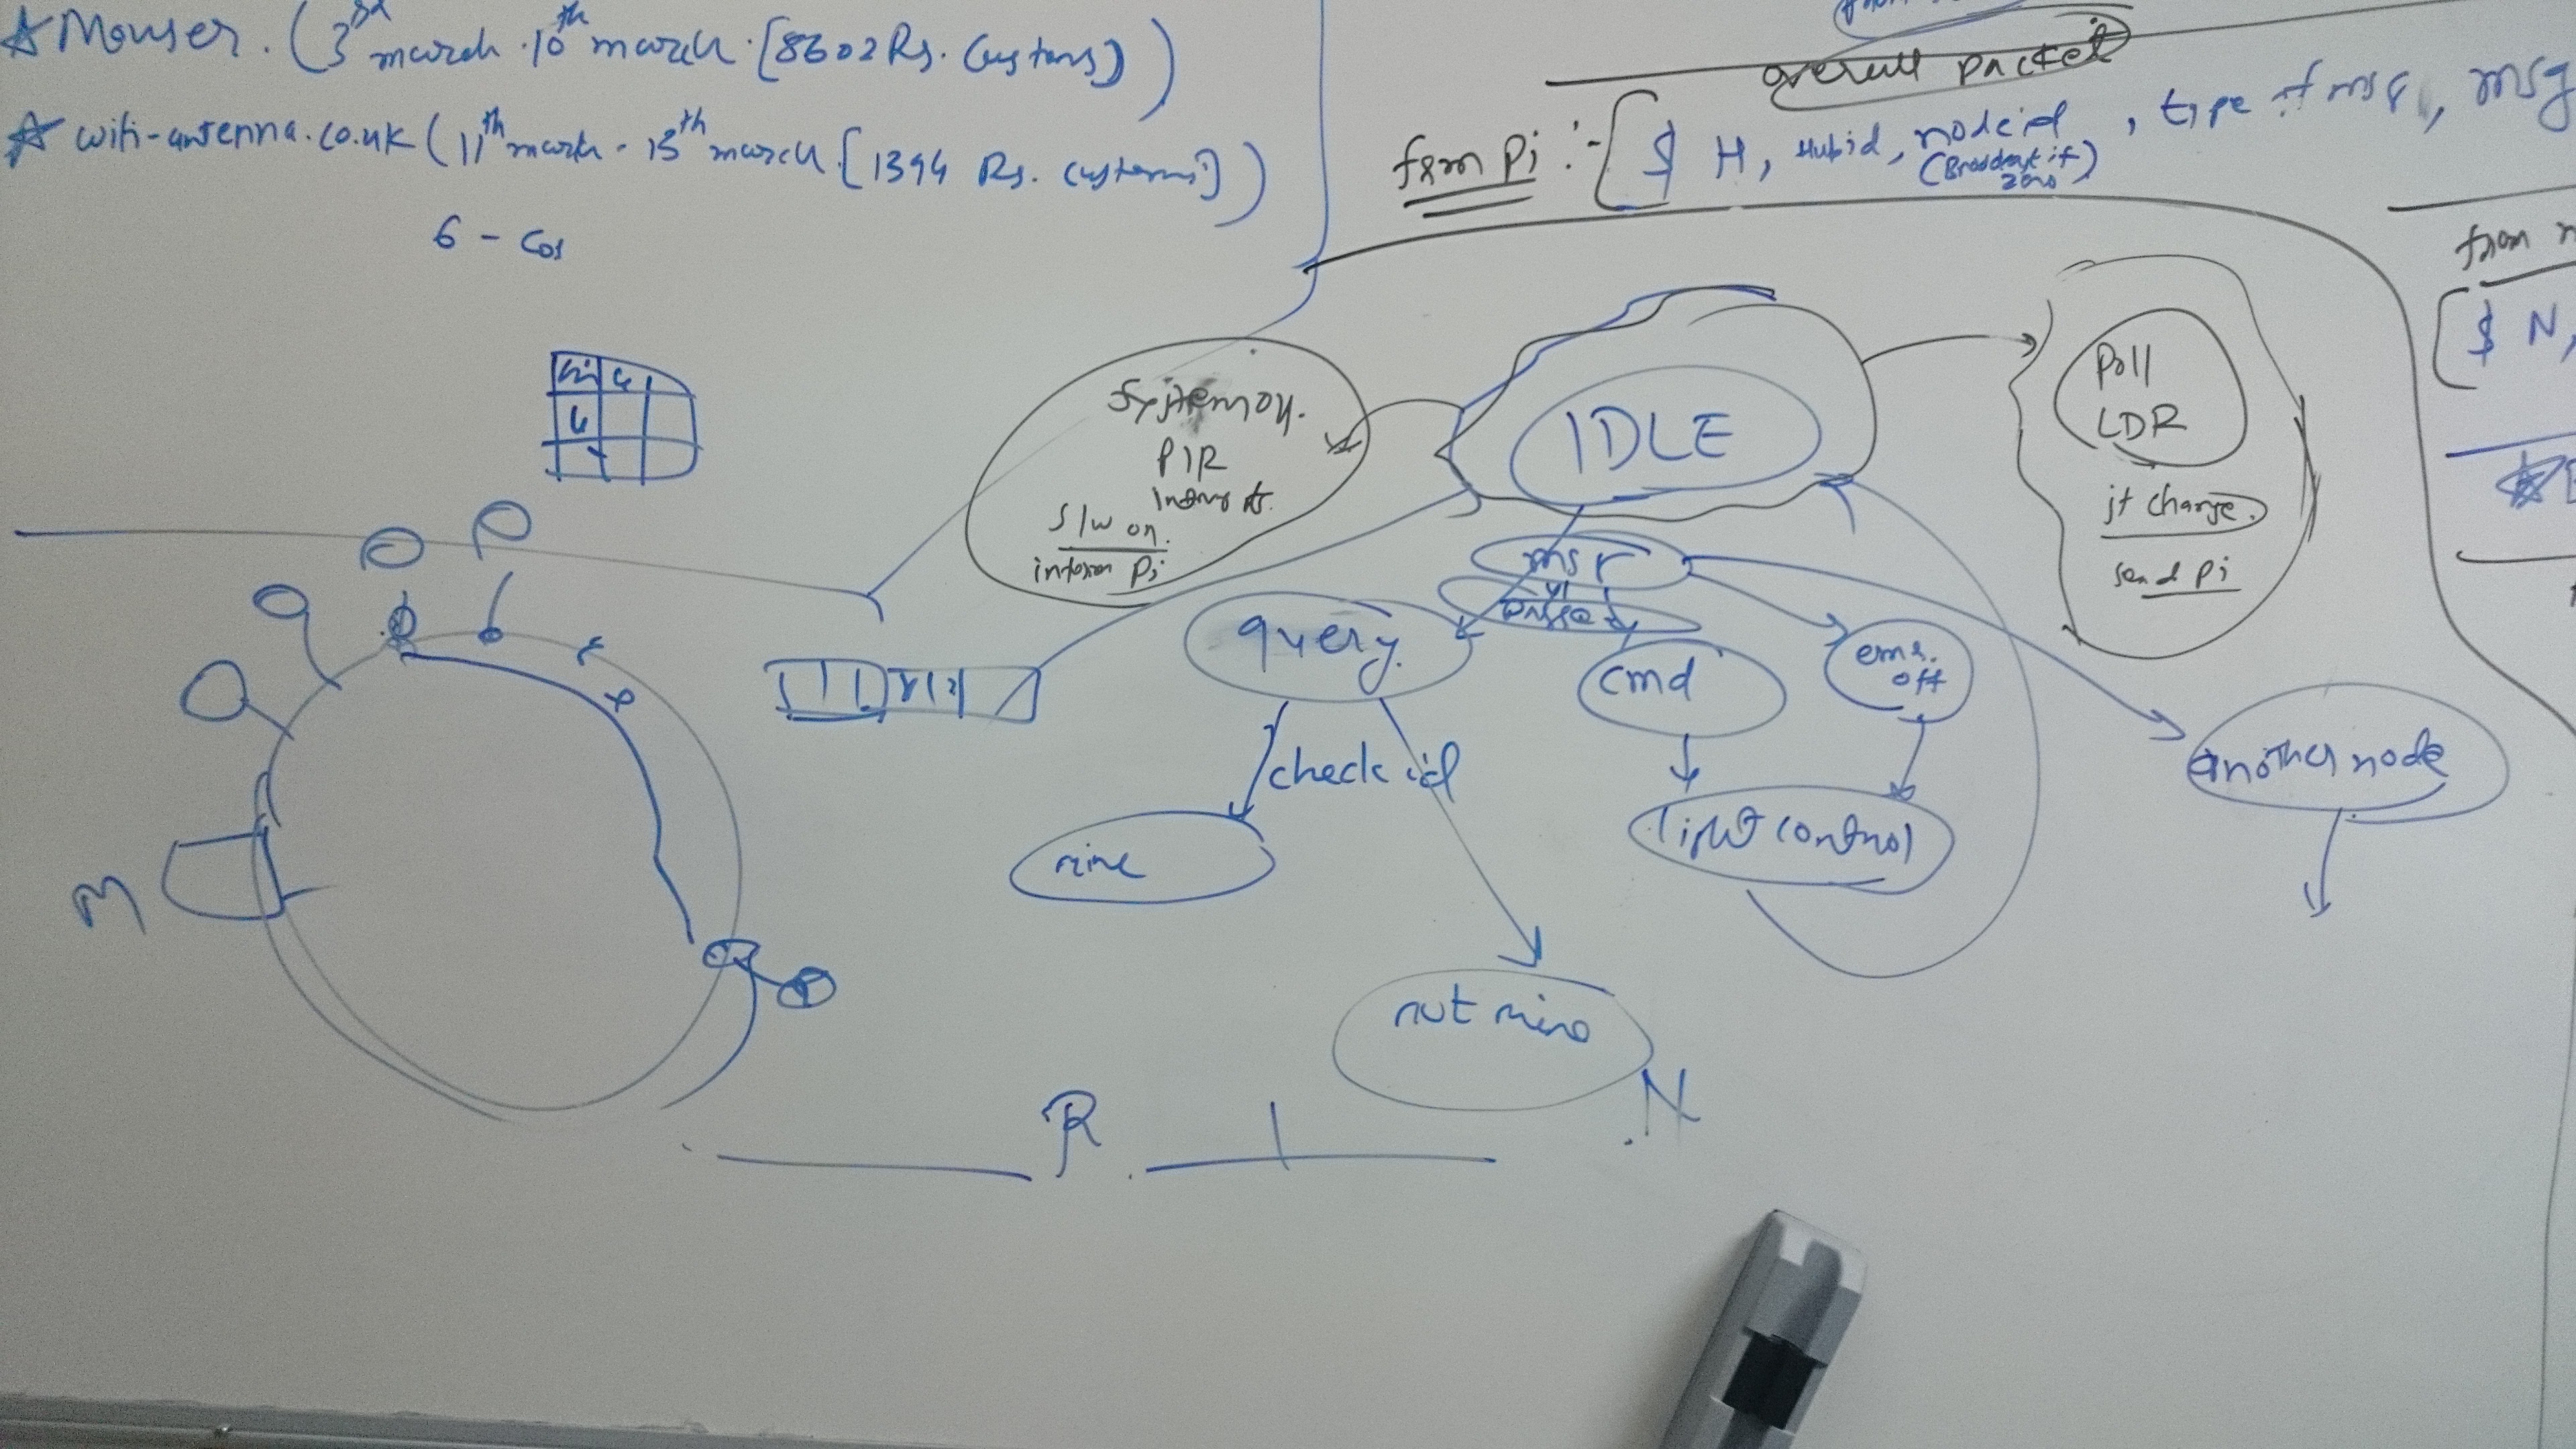 Mouser. (3rd march - 10th march. [8602 Rs. Customs])
wifi-antenna.co.uk (11th march - 15th march. [1394 Rs. customs])
6 - Cos
overall packet
from Pi :- [ $ H, Hubid, nodeid, type of msg, msg
(Broadcast if zero)
from
[ $ N,
System on.
PIR
Interrupt.
S/w on.
inform Pi
IDLE
Poll
LDR
if change.
send Pi
msg
query.
cmd
emr.
off
another node
check id
mine
light control
not mine
M
R
N